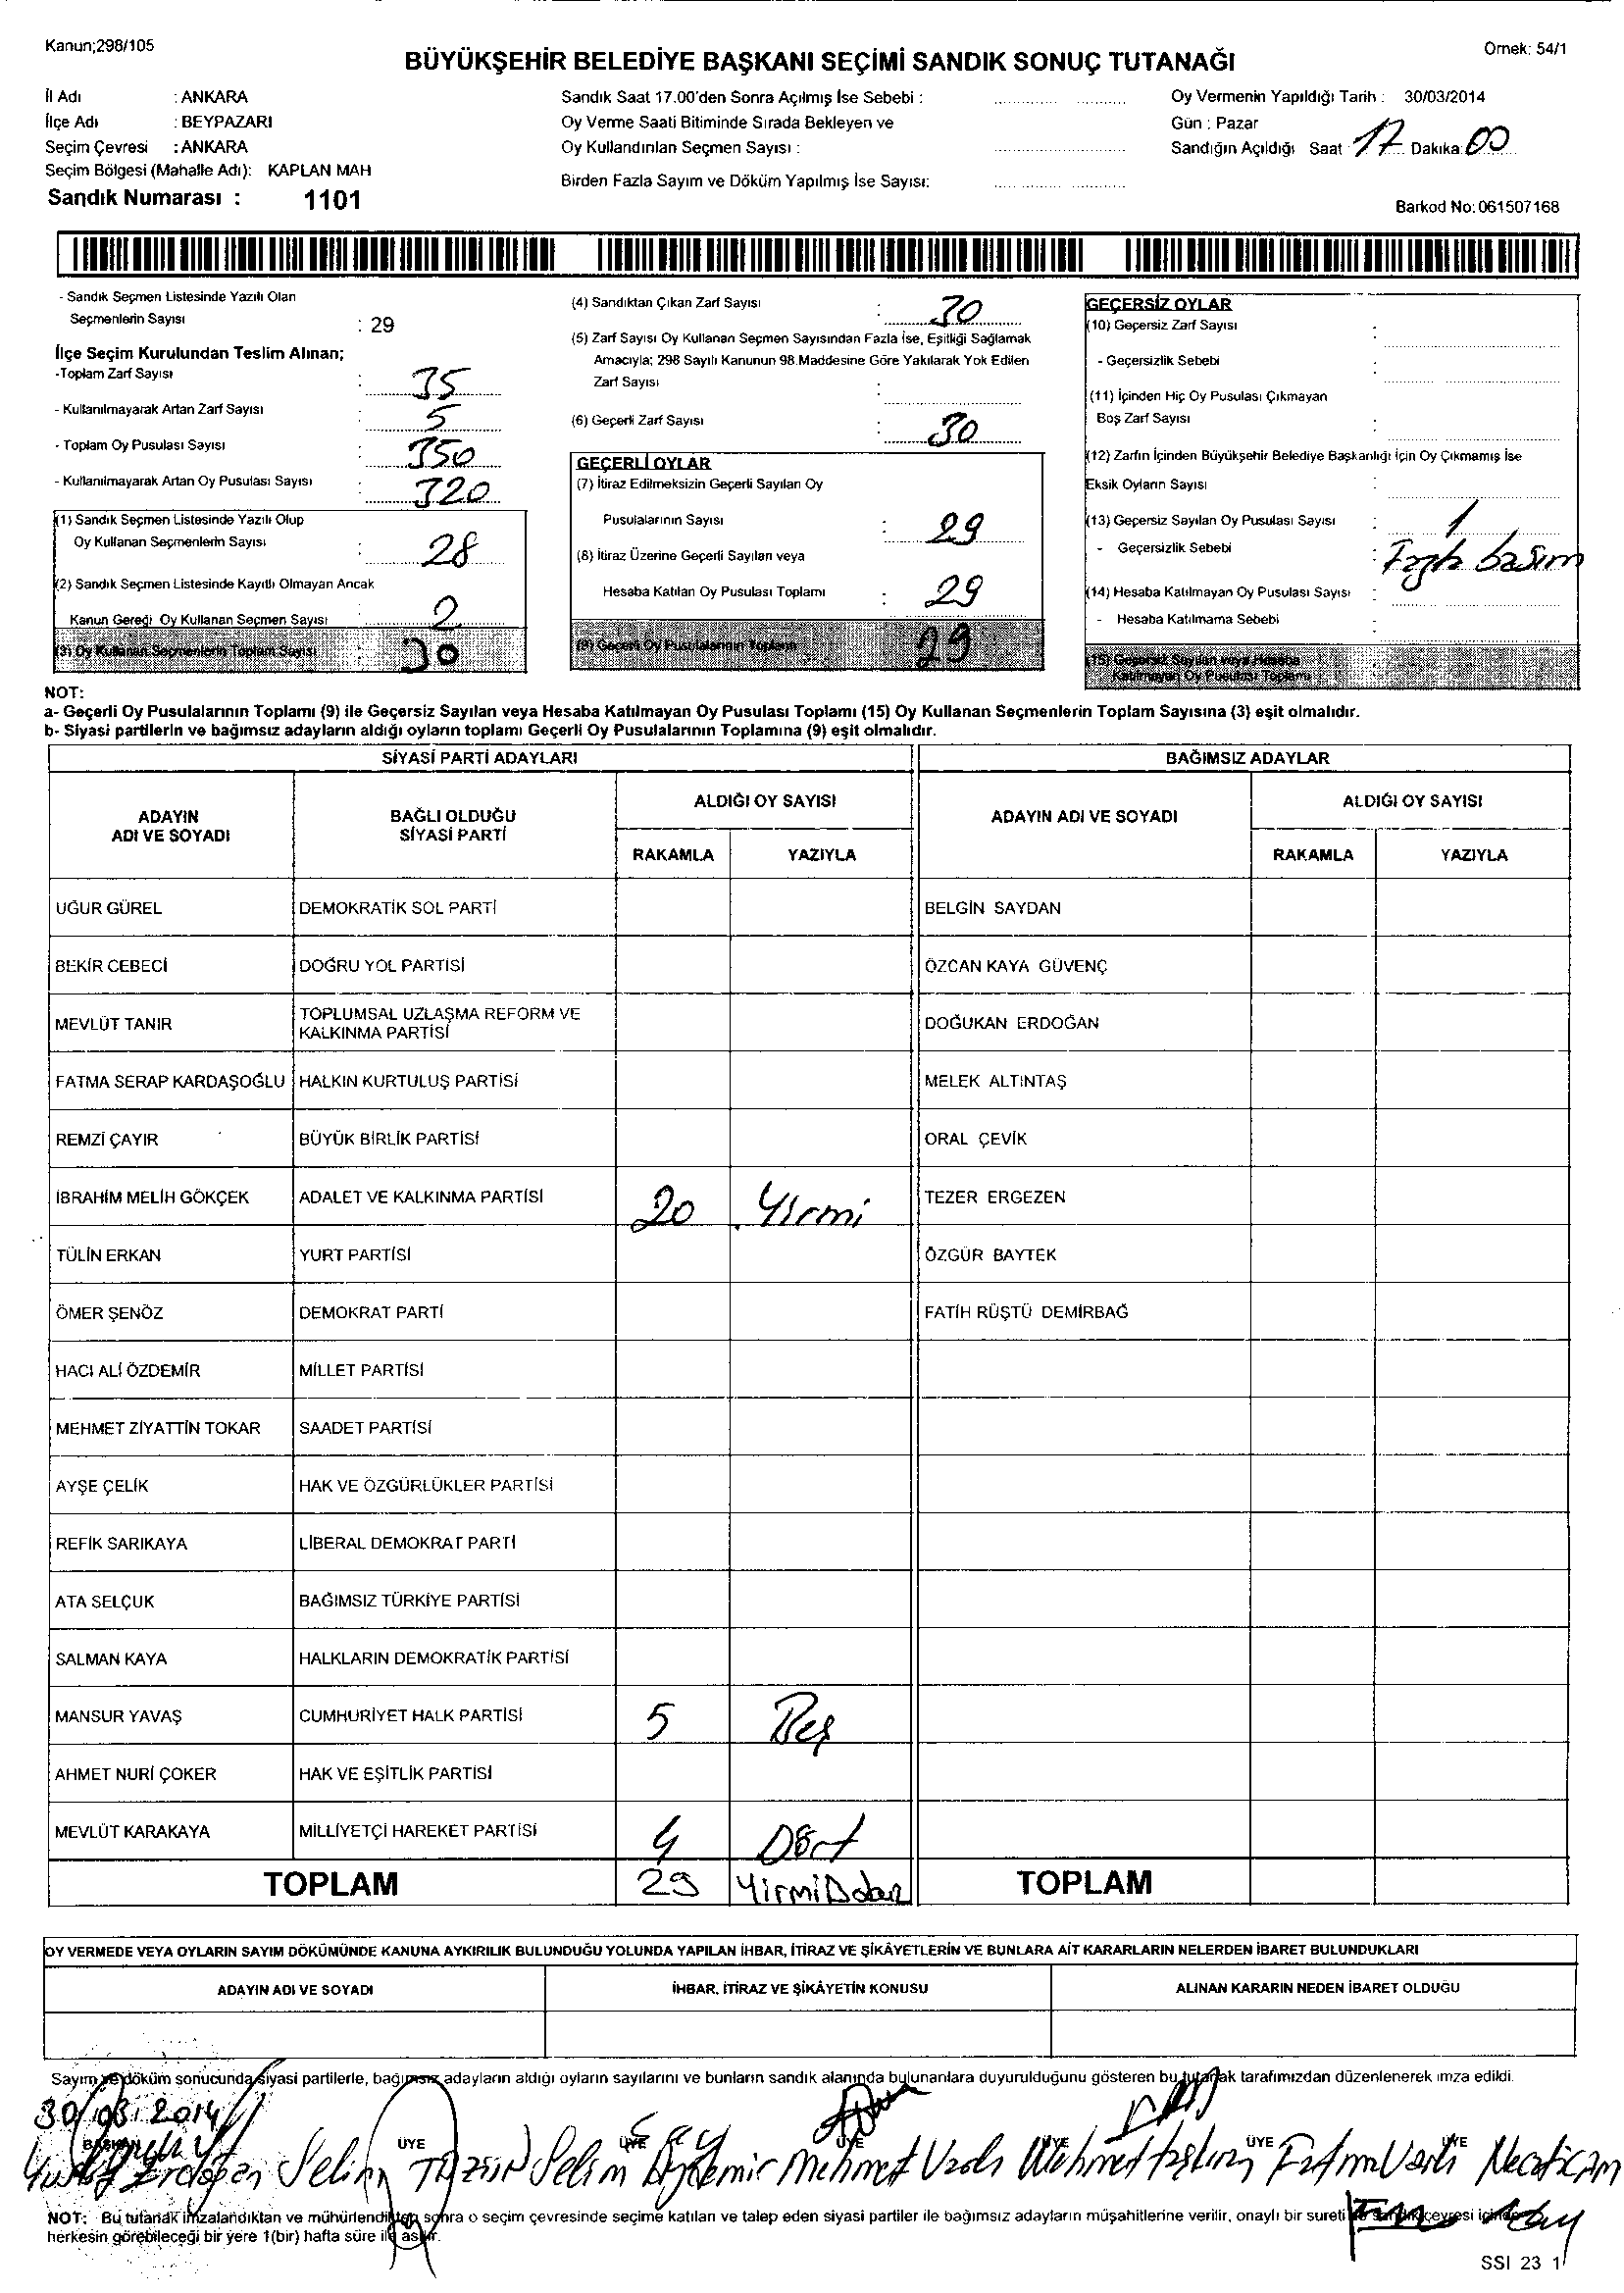 Kanun;298/105
Örnek: 54/1
BÜYÜKŞEHİR BELEDİYE BAŞKANI SEÇİMİ SANDIK SONUÇ TUTANAĞI
İl Adı : ANKARA
İlçe Adı : BEYPAZARI
Seçim Çevresi : ANKARA
Seçim Bölgesi (Mahalle Adı): KAPLAN MAH
Sandık Numarası : 1101
Sandık Saat 17.00'den Sonra Açılmış İse Sebebi :
Oy Verme Saati Bitiminde Sırada Bekleyen ve
Oy Kullandırılan Seçmen Sayısı :
Birden Fazla Sayım ve Döküm Yapılmış İse Sayısı:
Oy Vermenin Yapıldığı Tarih : 30/03/2014
Gün : Pazar
Sandığın Açıldığı Saat 17 Dakika: 00
Barkod No: 061507168
- Sandık Seçmen Listesinde Yazılı Olan
Seçmenlerin Sayısı : 29
İlçe Seçim Kurulundan Teslim Alınan;
-Toplam Zarf Sayısı : 35
- Kullanılmayarak Artan Zarf Sayısı : 5
- Toplam Oy Pusulası Sayısı : 350
- Kullanılmayarak Artan Oy Pusulası Sayısı : 320
(1) Sandık Seçmen Listesinde Yazılı Olup
Oy Kullanan Seçmenlerin Sayısı : 28
(2) Sandık Seçmen Listesinde Kayıtlı Olmayan Ancak
Kanun Gereği Oy Kullanan Seçmen Sayısı : 2
(3) Oy Kullanan Seçmenlerin Toplam Sayısı : 30
(4) Sandıktan Çıkan Zarf Sayısı : 30
(5) Zarf Sayısı Oy Kullanan Seçmen Sayısından Fazla İse, Eşitliği Sağlamak
Amacıyla; 298 Sayılı Kanunun 98.Maddesine Göre Yakılarak Yok Edilen
Zarf Sayısı :
(6) Geçerli Zarf Sayısı : 30
GEÇERLİ OYLAR
(7) İtiraz Edilmeksizin Geçerli Sayılan Oy
Pusulalarının Sayısı : 29
(8) İtiraz Üzerine Geçerli Sayılan veya
Hesaba Katılan Oy Pusulası Toplamı : 29
(9) Geçerli Oy Pusulalarının Toplamı 29
GEÇERSİZ OYLAR
(10) Geçersiz Zarf Sayısı :
- Geçersizlik Sebebi :
(11) İçinden Hiç Oy Pusulası Çıkmayan
Boş Zarf Sayısı :
(12) Zarfın İçinden Büyükşehir Belediye Başkanlığı İçin Oy Çıkmamış İse
Eksik Oyların Sayısı :
(13) Geçersiz Sayılan Oy Pusulası Sayısı : 1
- Geçersizlik Sebebi : Fazla basım
(14) Hesaba Katılmayan Oy Pusulası Sayısı :
- Hesaba Katılmama Sebebi :
(15) Geçersiz Sayılan veya Hesaba
Katılmayan Oy Pusulası Toplamı :
NOT:
a- Geçerli Oy Pusulalarının Toplamı (9) ile Geçersiz Sayılan veya Hesaba Katılmayan Oy Pusulası Toplamı (15) Oy Kullanan Seçmenlerin Toplam Sayısına (3) eşit olmalıdır.
b- Siyasi partilerin ve bağımsız adayların aldığı oyların toplamı Geçerli Oy Pusulalarının Toplamına (9) eşit olmalıdır.
SİYASİ PARTİ ADAYLARI BAĞIMSIZ ADAYLAR
ADAYIN ADI VE SOYADI BAĞLI OLDUĞU SİYASİ PARTİ ALDIĞI OY SAYISI ADAYIN ADI VE SOYADI ALDIĞI OY SAYISI
RAKAMLA YAZIYLA RAKAMLA YAZIYLA
UĞUR GÜREL DEMOKRATİK SOL PARTİ BELGİN SAYDAN
BEKİR CEBECİ DOĞRU YOL PARTİSİ ÖZCAN KAYA GÜVENÇ
MEVLÜT TANIR TOPLUMSAL UZLAŞMA REFORM VE KALKINMA PARTİSİ DOĞUKAN ERDOĞAN
FATMA SERAP KARDAŞOĞLU HALKIN KURTULUŞ PARTİSİ MELEK ALTINTAŞ
REMZİ ÇAYIR BÜYÜK BİRLİK PARTİSİ ORAL ÇEVİK
İBRAHİM MELİH GÖKÇEK ADALET VE KALKINMA PARTİSİ 20 Yirmi TEZER ERGEZEN
TÜLİN ERKAN YURT PARTİSİ ÖZGÜR BAYTEK
ÖMER ŞENÖZ DEMOKRAT PARTİ FATİH RÜŞTÜ DEMİRBAĞ
HACI ALİ ÖZDEMİR MİLLET PARTİSİ
MEHMET ZİYATTİN TOKAR SAADET PARTİSİ
AYŞE ÇELİK HAK VE ÖZGÜRLÜKLER PARTİSİ
REFİK SARIKAYA LİBERAL DEMOKRAT PARTİ
ATA SELÇUK BAĞIMSIZ TÜRKİYE PARTİSİ
SALMAN KAYA HALKLARIN DEMOKRATİK PARTİSİ
MANSUR YAVAŞ CUMHURİYET HALK PARTİSİ 5 Beş
AHMET NURİ ÇOKER HAK VE EŞİTLİK PARTİSİ
MEVLÜT KARAKAYA MİLLİYETÇİ HAREKET PARTİSİ 4 Dört
TOPLAM 29 TOPLAM
OY VERMEDE VEYA OYLARIN SAYIM DÖKÜMÜNDE KANUNA AYKIRILIK BULUNDUĞU YOLUNDA YAPILAN İHBAR, İTİRAZ VE ŞİKÂYETLERİN VE BUNLARA AİT KARARLARIN NELERDEN İBARET BULUNDUKLARI
ADAYIN ADI VE SOYADI İHBAR, İTİRAZ VE ŞİKÂYETİN KONUSU ALINAN KARARIN NEDEN İBARET OLDUĞU
Sayım ve döküm sonucunda siyasi partilerle, bağımsız adayların aldığı oyların sayılarını ve bunların sandık alanında bulunanlara duyurulduğunu gösteren bu tutanak tarafımızdan düzenlenerek imza edildi.
30/03/2014
BAŞKAN ÜYE ÜYE ÜYE ÜYE ÜYE ÜYE
Erdoğan Selim Selim Aydemir Mehmet Mehmet Fatma Varlı Necati
NOT: Bu tutanak imzalandıktan ve mühürlendikten sonra o seçim çevresinde seçime katılan ve talep eden siyasi partiler ile bağımsız adayların müşahitlerine verilir, onaylı bir sureti de sandık çevresi içinde
herkesin görebileceği bir yere 1(bir) hafta süre ile asılır.
SSI 23 1